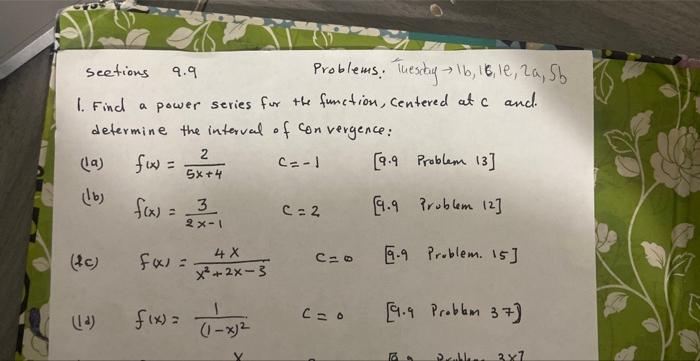 Sections 9.9 Problems: Tuesday → 1b, 1c, 1e, 2a, 5b
1. Find a power series for the function, centered at c and
determine the interval of convergence:
(1a) f(x) = 2/(5x+4) C = -1 [9.9 Problem 13]
(1b) f(x) = 3/(2x-1) C = 2 [9.9 Problem 12]
(1c) f(x) = 4x/(x²+2x-3) C = 0 [9.9 Problem. 15]
(1d) f(x) = 1/(1-x)² C = 0 [9.9 Problem 37]